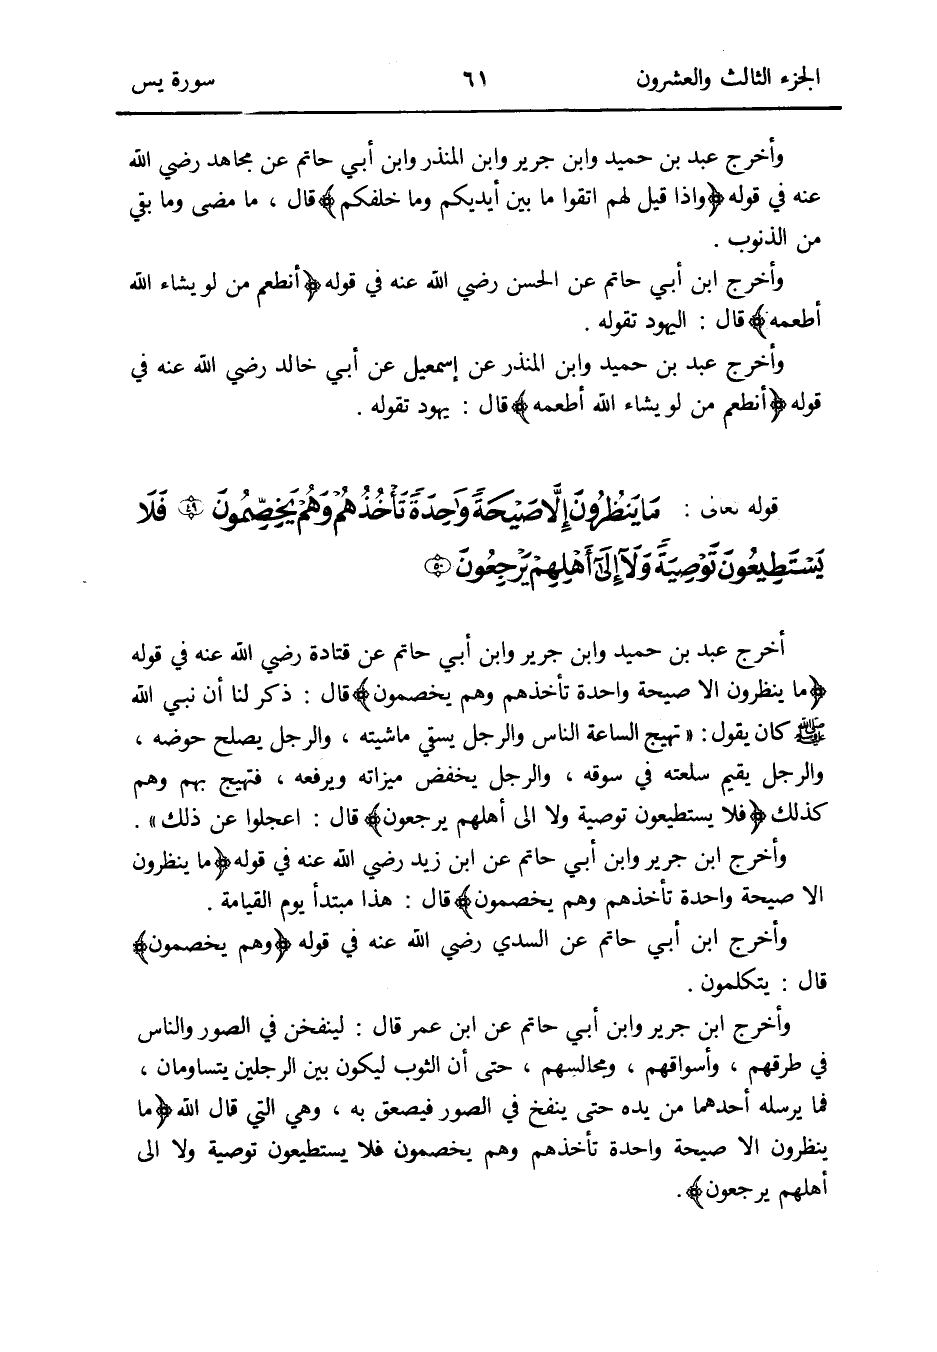 الجزء الثالث والعشرون ٦١ سورة يس
وأخرج عبد بن حميد وابن جرير وابن المنذر وابن أبي حاتم عن مجاهد رضي الله
عنه في قوله ﴿واذا قيل لهم اتقوا ما بين أيديكم وما خلفكم﴾ قال ، ما مضى وما بقي
من الذنوب .
وأخرج ابن أبي حاتم عن الحسن رضي الله عنه في قوله ﴿أنطعم من لو يشاء الله
أطعمه﴾ قال : اليهود تقوله .
وأخرج عبد بن حميد وابن المنذر عن إسمعيل عن أبي خالد رضي الله عنه في
قوله ﴿أنطعم من لو يشاء الله أطعمه﴾ قال : يهود تقوله .
قوله تعالى : مَا يَنظُرُونَ إِلَّا صَيْحَةً وَٰحِدَةً تَأْخُذُهُمْ وَهُمْ يَخِصِّمُونَ ٤٩ فَلَا
يَسْتَطِيعُونَ تَوْصِيَةً وَلَآ إِلَىٰٓ أَهْلِهِمْ يَرْجِعُونَ ٥٠
أخرج عبد بن حميد وابن جرير وابن أبي حاتم عن قتادة رضي الله عنه في قوله
﴿ما ينظرون الا صيحة واحدة تأخذهم وهم يخصمون﴾ قال : ذكر لنا أن نبي الله
ﷺ كان يقول : « تهيج الساعة الناس والرجل يسقي ماشيته ، والرجل يصلح حوضه ،
والرجل يقيم سلعته في سوقه ، والرجل يخفض ميزاته ويرفعه ، فتهيج بهم وهم
كذلك ﴿فلا يستطيعون توصية ولا الى أهلهم يرجعون﴾ قال : اعجلوا عن ذلك» .
وأخرج ابن جرير وابن أبي حاتم عن ابن زيد رضي الله عنه في قوله ﴿ما ينظرون
الا صيحة واحدة تأخذهم وهم يخصمون﴾ قال : هذا مبتدأ يوم القيامة .
وأخرج ابن أبي حاتم عن السدي رضي الله عنه في قوله ﴿وهم يخصمون﴾
قال : يتكلمون .
وأخرج ابن جرير وابن أبي حاتم عن ابن عمر قال : لينفخن في الصور والناس
في طرقهم ، وأسواقهم ، ومجالسهم ، حتى أن الثوب ليكون بين الرجلين يتساومان ،
فما يرسله أحدهما من يده حتى ينفخ في الصور فيصعق به ، وهي التي قال الله ﴿ما
ينظرون الا صيحة واحدة تأخذهم وهم يخصمون فلا يستطيعون توصية ولا الى
أهلهم يرجعون﴾ .